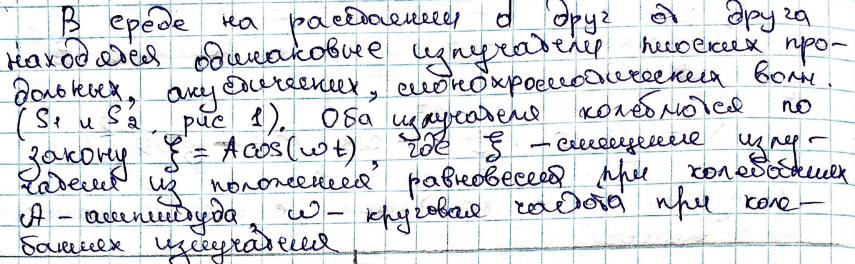 В среде на расстоянии d друг от друга
находятся одинаковые излучатели плоских про-
дольных, акустических, монохроматических волн.
(S1 и S2, рис 1). Оба излучателя колеблются по
закону ξ = A cos(ωt), где ξ - смещение излу-
чателя из положения равновесия при колебаниях
A - амплитуда, ω - круговая частота при коле-
баниях излучателя